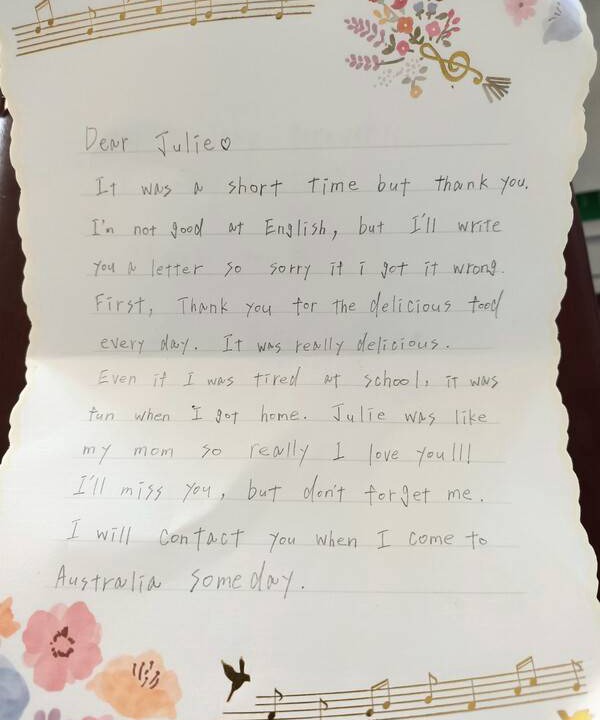 Dear Julie♡
It was a short time but thank you.
I'm not good at English, but I'll write
you a letter so sorry if i got it wrong.
First, Thank you for the delicious food
every day. It was really delicious.
Even if I was tired at school, it was
fun when I got home. Julie was like
my mom so really I love you!!!
I'll miss you, but don't forget me.
I will contact you when I come to
Australia someday.